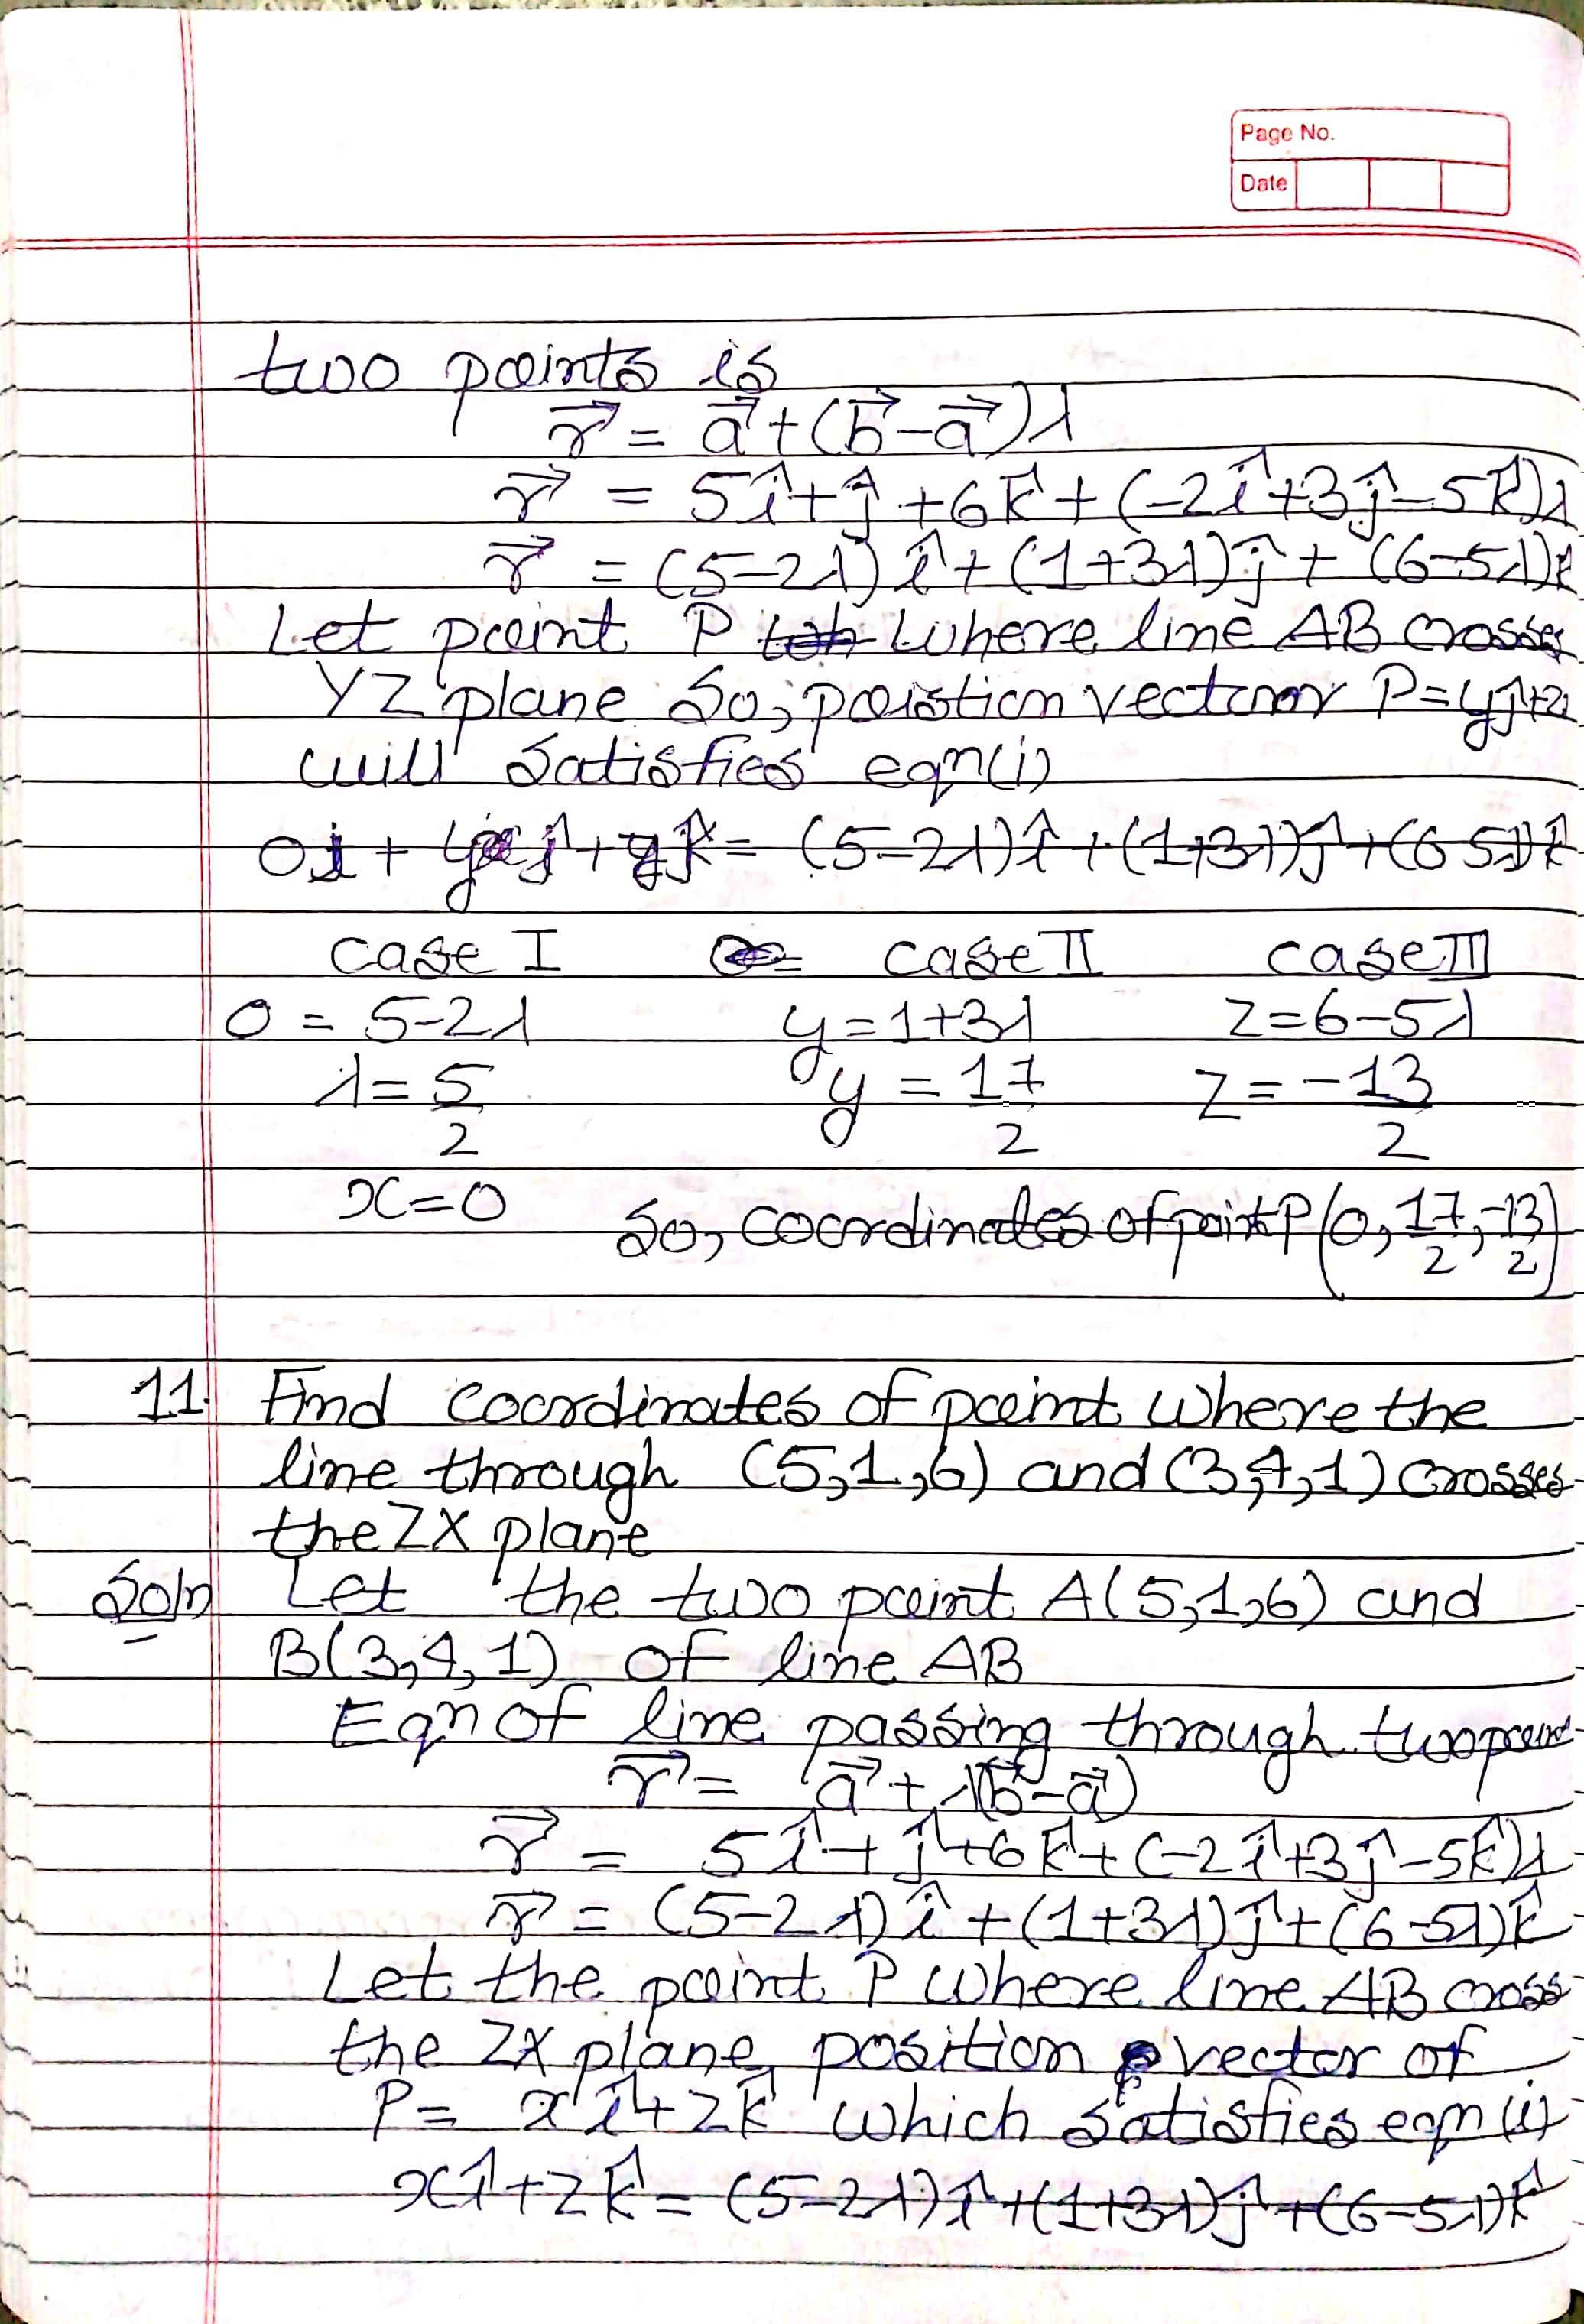 Page No.
Date
two points is
r⃗ = a⃗ + (b⃗ - a⃗)λ
r⃗ = 5î + ĵ + 6k̂ + (-2î + 3ĵ - 5k̂)λ
r⃗ = (5-2λ)î + (1+3λ)ĵ + (6-5λ)k̂
Let point P where line AB crosses
YZ plane So, poistion vector P = yĵ + z
will satisfies eqn(i)
0î + yĵ + k̂ = (5-2λ)î + (1+3λ)ĵ + (6 5λ)k̂
case I case II case III
0 = 5-2λ y = 1+3λ z = 6-5λ
λ = 5/2 y = 17/2 z = -13/2
x = 0 So, coordinates of point P (0, 17/2, -13/2)
11. Find coordinates of point where the
line through (5,1,6) and (3,4,1) crosses
the ZX plane
Soln Let the two point A(5,1,6) and
B(3,4,1) of line AB
Eqn of line passing through two point
r⃗ = a⃗ + λ(b⃗ - a⃗)
r⃗ = 5î + ĵ + 6k̂ + (-2î + 3ĵ - 5k̂)λ
r⃗ = (5-2λ)î + (1+3λ)ĵ + (6-5λ)k̂
Let the point P where line AB cross
the ZX plane, position vector of
P = xî + zk̂ which satisfies eqn (i)
xî + zk̂ = (5-2λ)î + (1+3λ)ĵ + (6-5λ)k̂